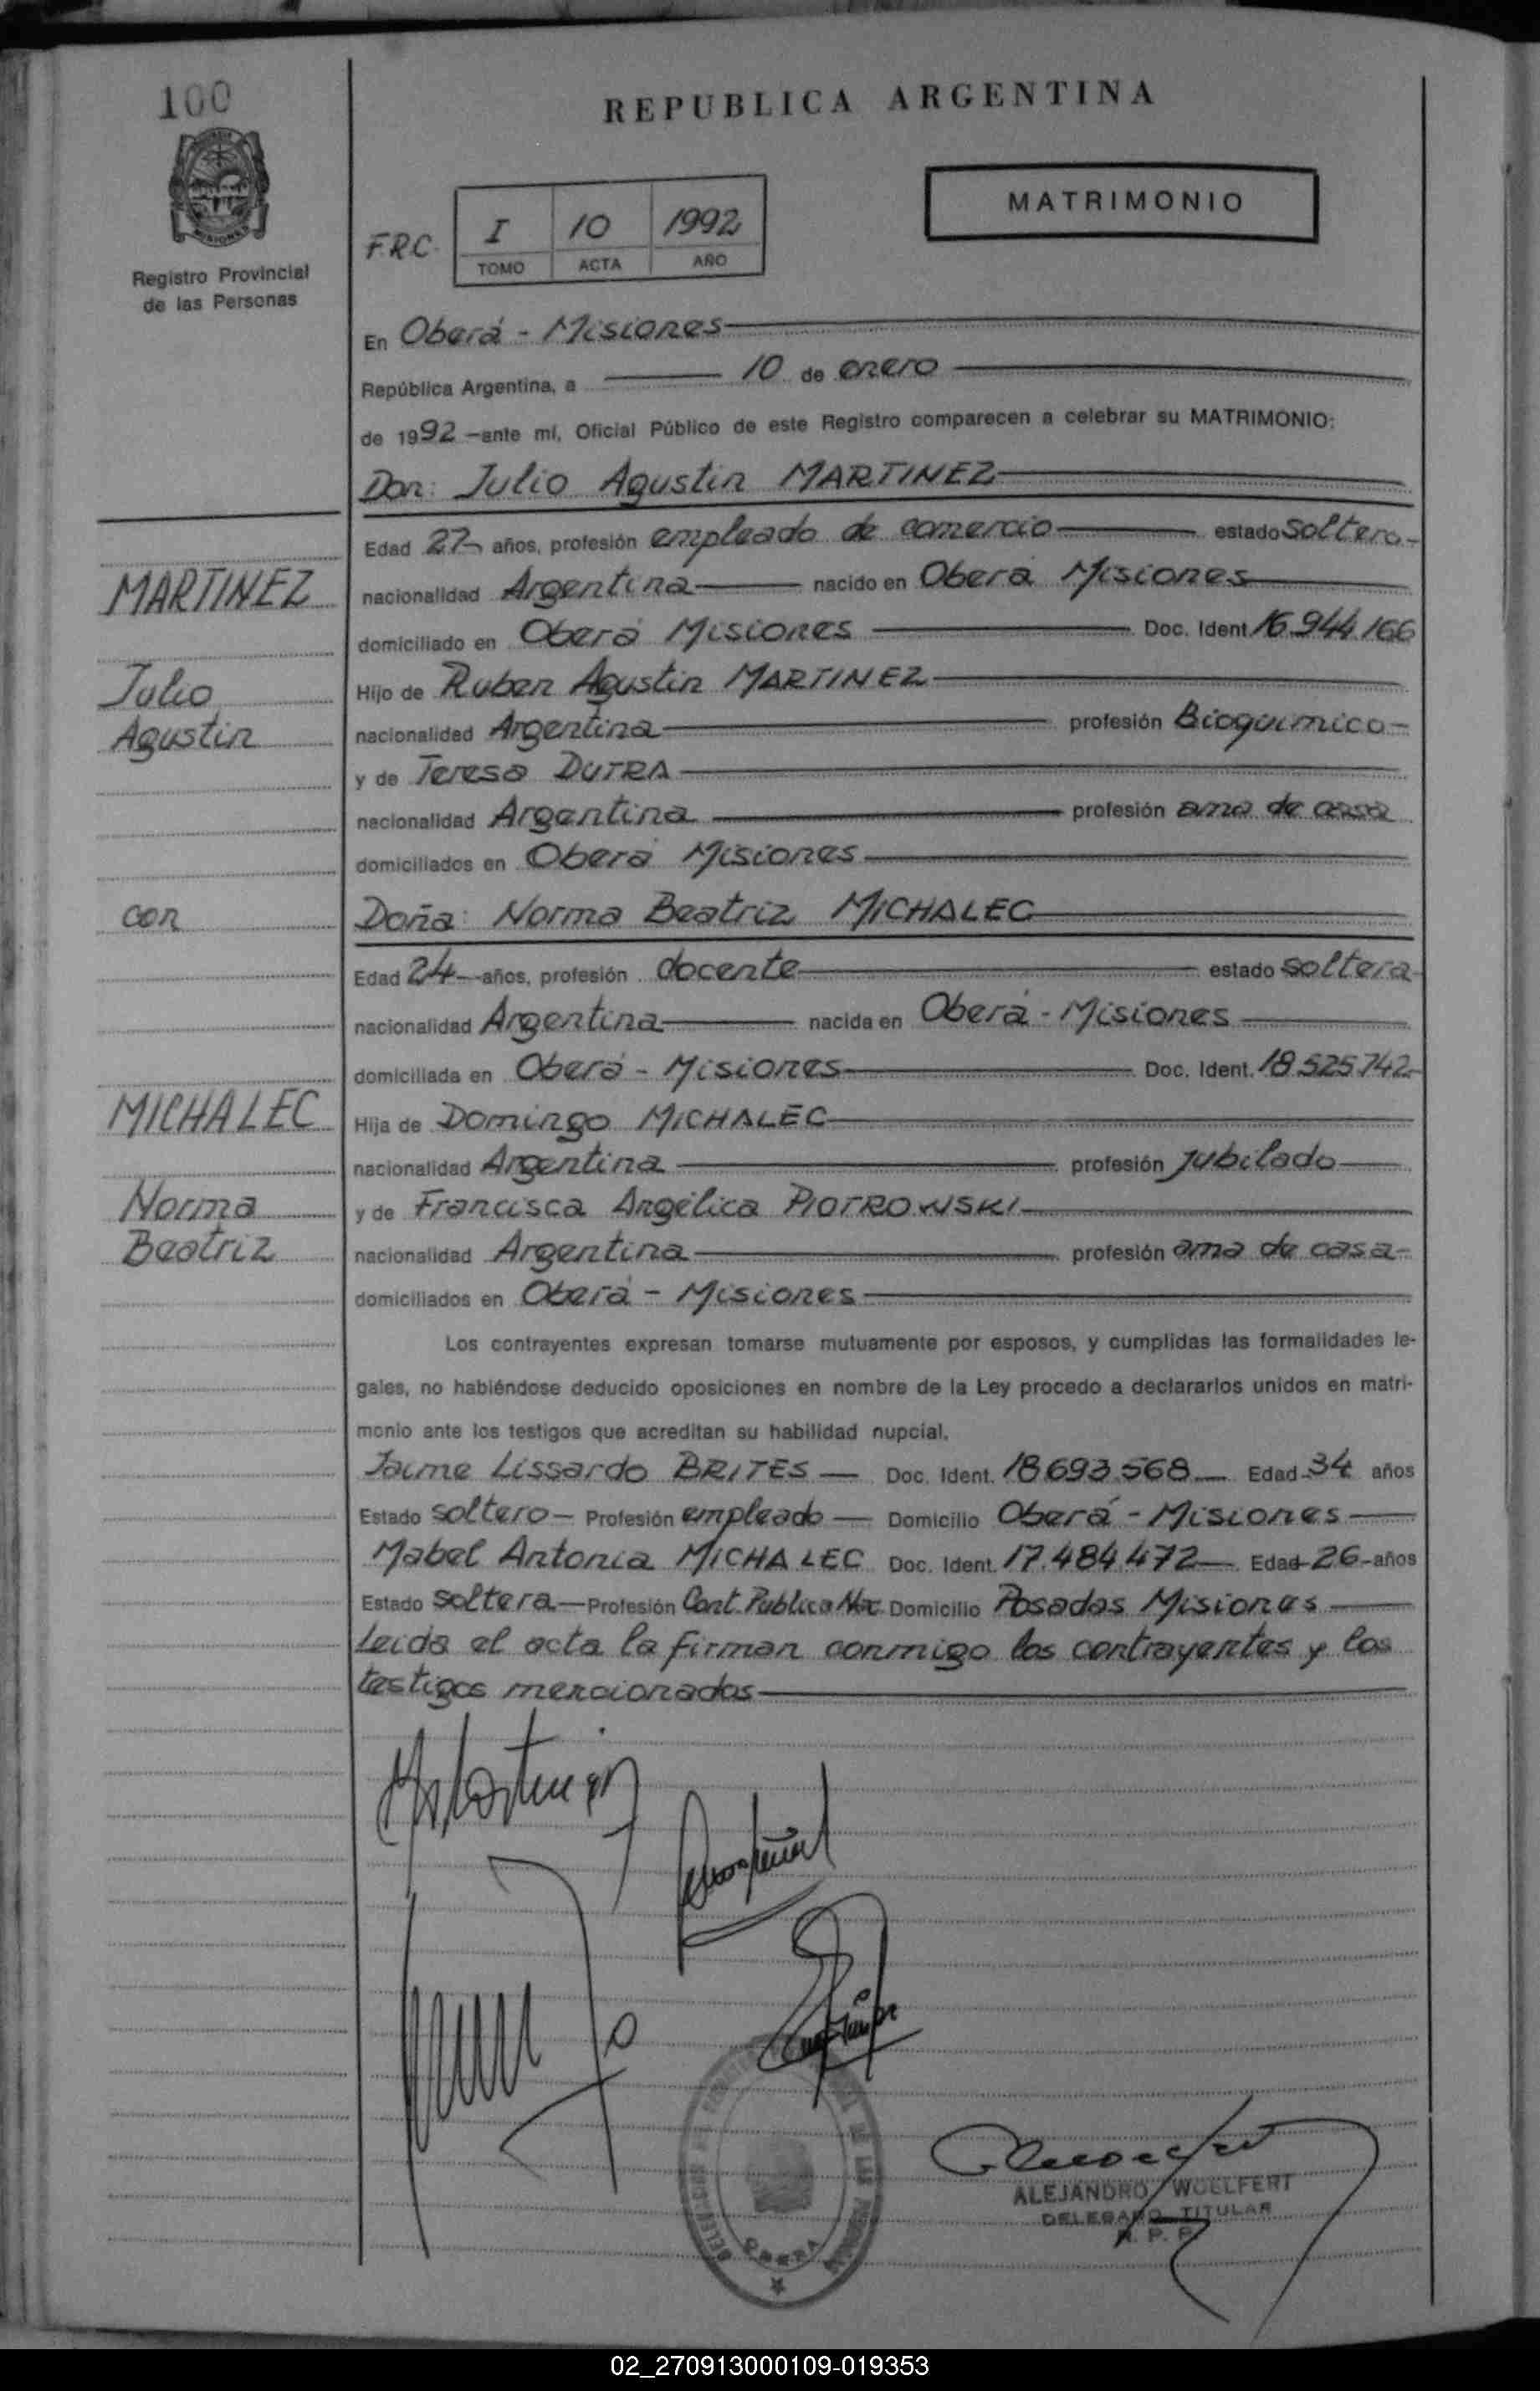 100
REPUBLICA ARGENTINA
MATRIMONIO
MISIONES
Registro Provincial
de las Personas
F.R.C.
I 10 1992
TOMO ACTA AÑO
En Oberá - Misiones
República Argentina, a 10 de enero
de 1992 -ante mí, Oficial Público de este Registro comparecen a celebrar su MATRIMONIO:
Don: Julio Agustin MARTINEZ
Edad 27 años, profesión empleado de comercio estado soltero
nacionalidad Argentina nacido en Oberá Misiones
domiciliado en Oberá Misiones Doc. Ident. 16.944.166
Hijo de Ruben Agustin MARTINEZ
nacionalidad Argentina profesión Bioquimico
y de Teresa DUTRA
nacionalidad Argentina profesión ama de casa
domiciliados en Oberá Misiones
Doña: Norma Beatriz MICHALEC
Edad 24 años, profesión docente estado soltera
nacionalidad Argentina nacida en Oberá - Misiones
domiciliada en Oberá - Misiones Doc. Ident. 18.525.742
Hija de Domingo MICHALEC
nacionalidad Argentina profesión jubilado
y de Francisca Angélica PIOTROWSKI
nacionalidad Argentina profesión ama de casa
domiciliados en Oberá - Misiones
Los contrayentes expresan tomarse mutuamente por esposos, y cumplidas las formalidades le-
gales, no habiéndose deducido oposiciones en nombre de la Ley procedo a declararlos unidos en matri-
monio ante los testigos que acreditan su habilidad nupcial.
Jaime Lissardo BRITES Doc. Ident. 18.693.568 Edad 34 años
Estado soltero Profesión empleado Domicilio Oberá - Misiones
Mabel Antonia MICHALEC Doc. Ident. 17.484.472 Edad 26 años
Estado soltera Profesión Cont. Publica Domicilio Posadas Misiones
Leida el acta la firman conmigo los contrayentes y los
testigos mencionados
MARTINEZ
Julio
Agustin
con
MICHALEC
Norma
Beatriz
OBERA
ALEJANDRO WOELFERT
DELEGADO TITULAR
R. P. P.
02_270913000109-019353